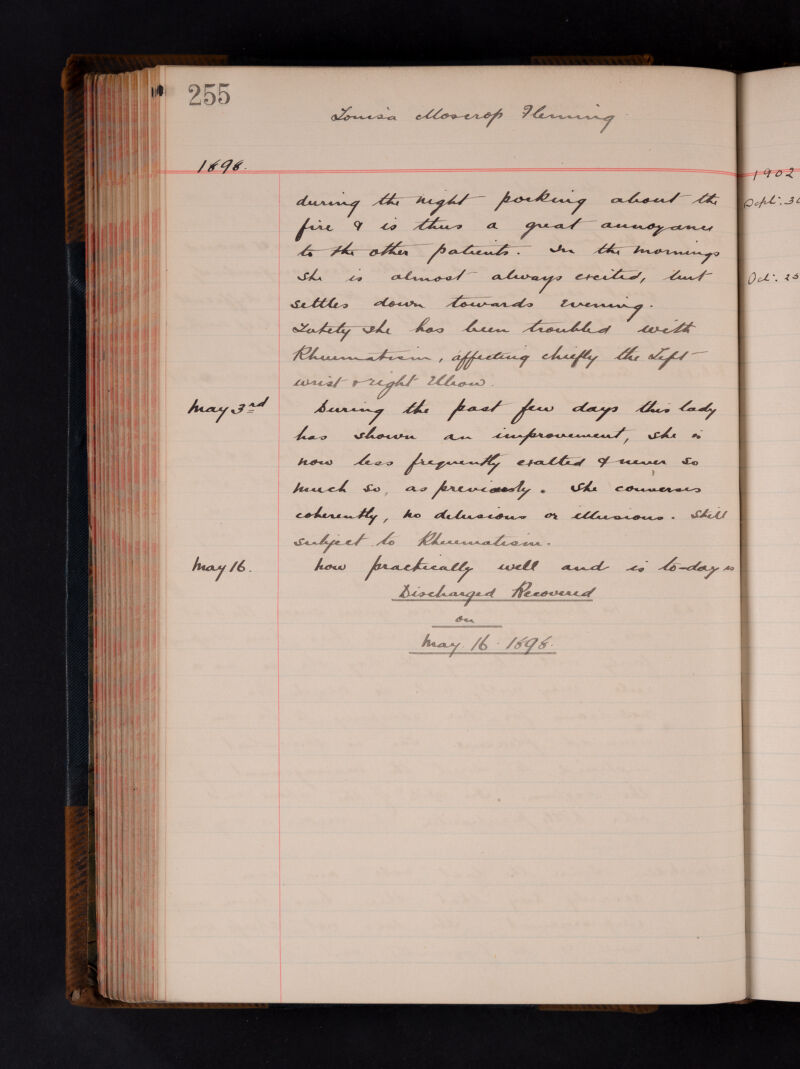 255
Louisa Moscrop Fleming
1898.
during the night pocking about the
fire & is thus a great annoyance
to the other patients. In the mornings
she is almost always excited, but
settles down towards evening.
Lately she has been troubled with
Rheumatism, affecting chiefly the Left
wrist & right Elbow.
May 3rd During the past few days this lady
has shown an improvement, she is
now less frequently exalted & never so
much so, as previously. She converses
coherently, no delusions or illusions. Still
subject to Rheumatism.
May 16. Now practically well and is to-day is
Discharged Recovered
on
May. 16. 1898.
1902
Sept. 30
Oct. 25